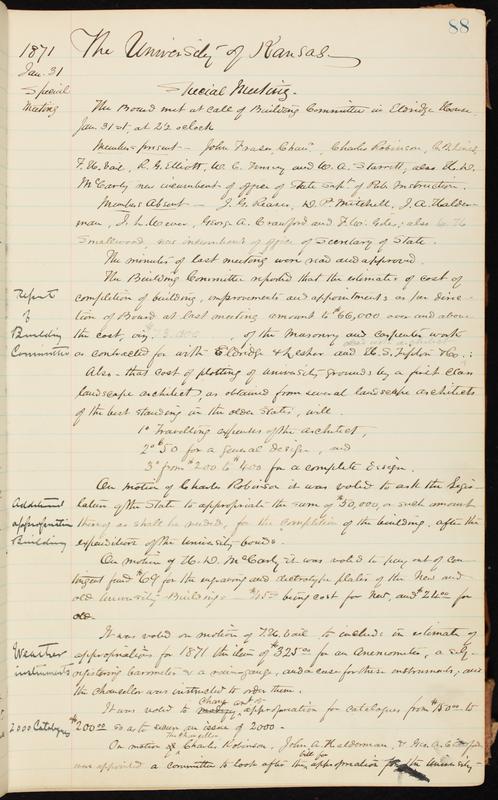 88
1871
Jan. 31
Special
Meeting
The University of Kansas
Special Meeting.
The Board met at call of Building Committee in Eldridge House,
Jan 31st, at 2½ oclock
Members present — John Fraser, Chanr, Charles Robinson,
F. H. Vail, R. G. Elliott, W. C. Tenney and W. A. Starrett, also H. D.
McCarty, new incumbent of office of State Supt of Pub. Instruction.
Members Absent — J. G. Reaser, D. P. Mitchell, J. A. Halder-
man, J. L. Wever, George A. Crawford and F. W. Giles; also W. H.
Smallwood, new incumbent of office of Secretary of State.
The minutes of last meeting were read and approved.
The Building Committee reported that the estimates of cost of
Report
of
Building
Committee
completion of building, improvements and appointments as per direc-
tion of Board at last meeting amount to $66,000 over and above
the cost, viz, of the Masonry and carpenter work
as contracted for with Eldridge & Lesher and H. S. Tipton & Co.;
Also — that cost of plotting of university grounds by a first class
landscape architect, as obtained from several landscape architects
of the best standing in the older States, will
1o Travelling expenses of the architect,
2o $50 for a general design, and
3o from $200 to $400 for a complete design.
On motion of Charles Robinson it was voted to ask the Legis-
lature of the State to appropriate the sum of $50,000, or such amount
Additional
appropriation
Building
thereof as shall be needed, for the completion of the building, after the
expenditure of the University bonds.
On motion of H. D. McCarty it was voted to pay out of con-
tingent fund $69 for the engraving and electrotype plates of the New and
old University Buildings — $45.00 being cost for New, and $24.00 for
old.
It was voted on motion of F. H. Vail to include in estimate of
Weather
instruments
appropriations for 1871 the item of $325.00 for an Anemometer, a self-
registering barometer & a rain-gauge, and a case for these instruments; and
the chancellor was instructed to order them.
It was voted to change amt of appropriation for catalogues from $150.00 to
2000 Catalogues
$200.00 so as to secure an issue of 2000.
On motion of Charles Robinson, The Chancellor John A. Halderman, & Geo. A. Crawford
was appointed a committee to look after the bill for appropriation for the University